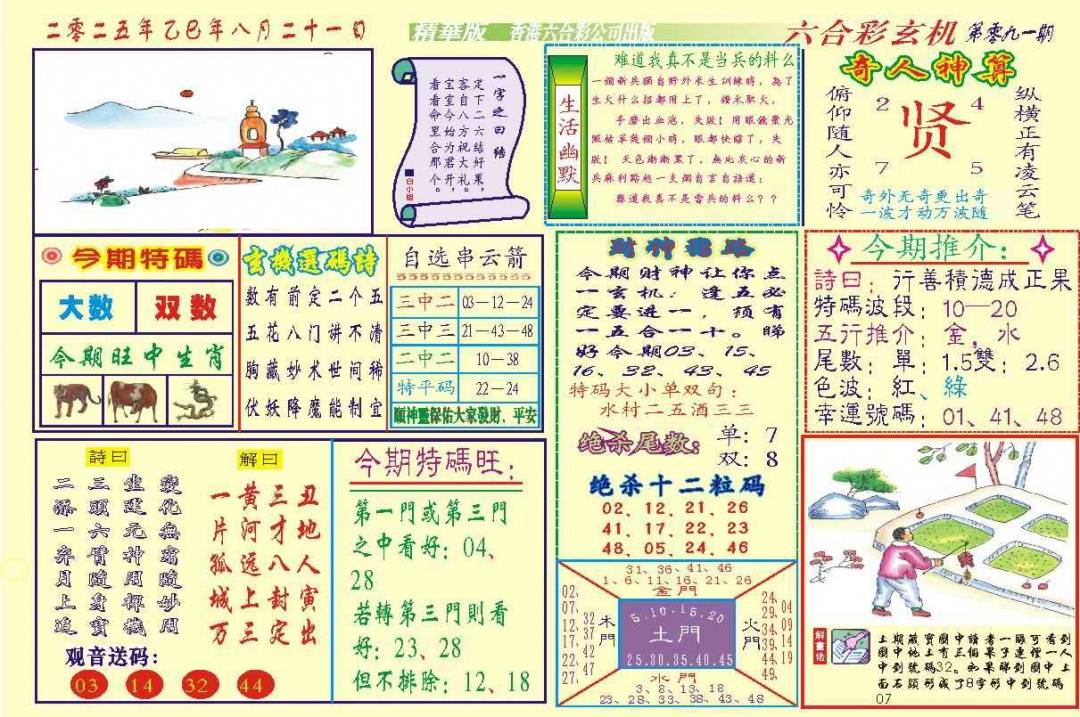 二零二五年乙巳年八月二十一旬
精華版 香港六合彩公司出版
六合彩玄机 第零九一期
一字之曰结
定下二六结好果,
客自八方祝大礼。
宝宝今始为君开,
看看命里合那个。
白小姐
生活幽默
难道我真不是当兵的料么
一個新兵獨自野外求生训練時,為了
生火什么招都用上了,鑽木取火,
手磨出血泡,失敗!用眼鏡聚光
照枯草幾個小時,眼都快瞎了,失
敗!天色漸漸黑了,無比灰心的新
兵麻利路起一支烟自言自語道:
難道我真不是當兵的料么??
奇人神算
俯仰随人亦可怜
2 4
贤
7 5
纵横正有凌云笔
奇外无奇更出奇
一波才动万波随
今期特碼
大数 双数
今期旺中生肖
玄機選碼詩
数有前定二个五
五花八门讲不清
胸藏妙术世间稀
伏妖降魔能制宜
自选串云箭
三中二 03—12—24
三中三 21—43—48
二中二 10—38
特平码 22—24
順神靈保佑大家發財、平安
今期财神让你点
一玄机:逢五必
定要进一,须有
一五合一十。睇
好今期03、15、
16、32、43、45
特码大小单双句:
水村二五酒三三
绝杀尾数:
单:7
双:8
绝杀十二粒码
02、12、21、26
41、17、22、23
48、05、24、46
今期推介:
詩曰:行善積德成正果
特碼波段:10—20
五行推介:金,水
尾數:單:1.5雙:2.6
色波:紅、綠
幸運號碼:01、41、48
詩曰
變化無窮隨妙用
坐運元神周禪機
三頭六臂隨身寶
二添一弃月上追
解曰
丑地人寅出
三才八封定
黄河远上三
一片孤城万
观音送码:
03 14 32 44
今期特碼旺:
第一門或第三門
之中看好:04、
28
若轉第三門則看
好:23、28
但不排除:12、18
31、36、41、46
1、6、11、16、21、26
金門
02、07、12、17、22、27、
32
37
42
47
木門
5.10.15.20
土門
25.30.35.40.45
火門
24、29、34、39、44、49、
04
09
14
19
水門
3、8、13、18
23、28、33、38、43、48
解畫佬
上期藏寶圖中讀者一眼可看到
圖中地上有三個果子連徑一人
中到號碼32。如果睇到圖中上
面石頭形成了8字形中到號碼
07